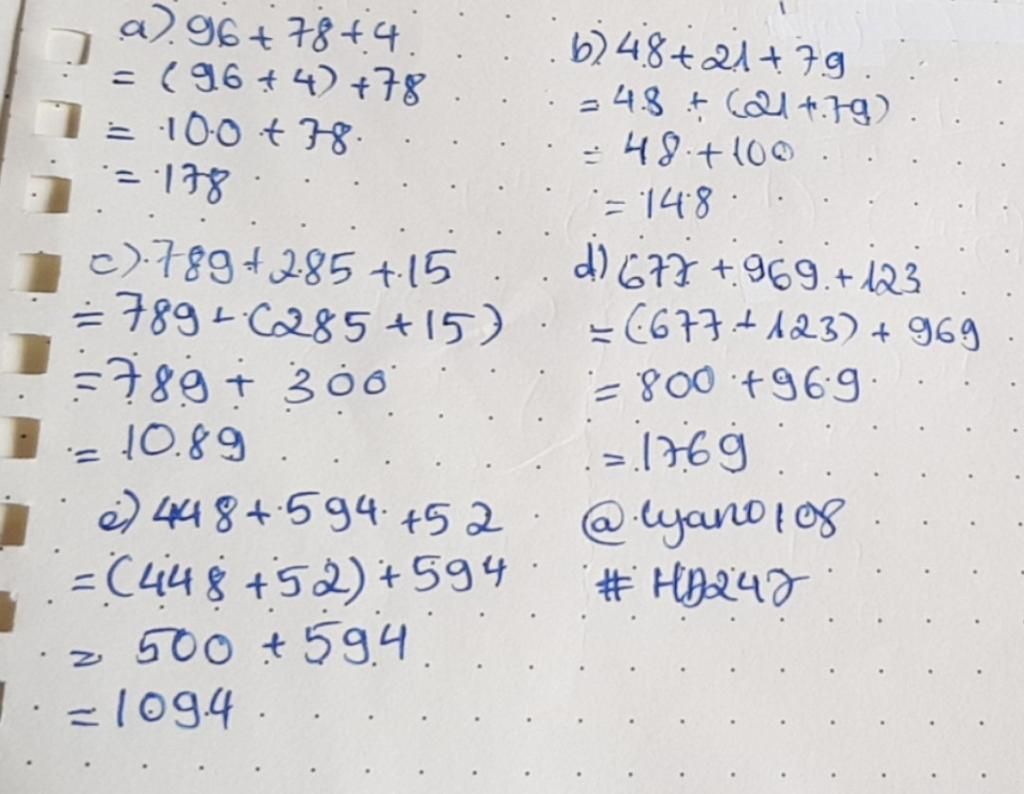 a) 96 + 78 + 4
= (96 + 4) + 78
= 100 + 78
= 178
b) 48 + 21 + 79
= 48 + (21 + 79)
= 48 + 100
= 148
c) 789 + 285 + 15
= 789 + (285 + 15)
= 789 + 300
= 1089
d) 677 + 969 + 123
= (677 + 123) + 969
= 800 + 969
= 1769
e) 448 + 594 + 52
= (448 + 52) + 594
= 500 + 594
= 1094
@lyano108
# HD247